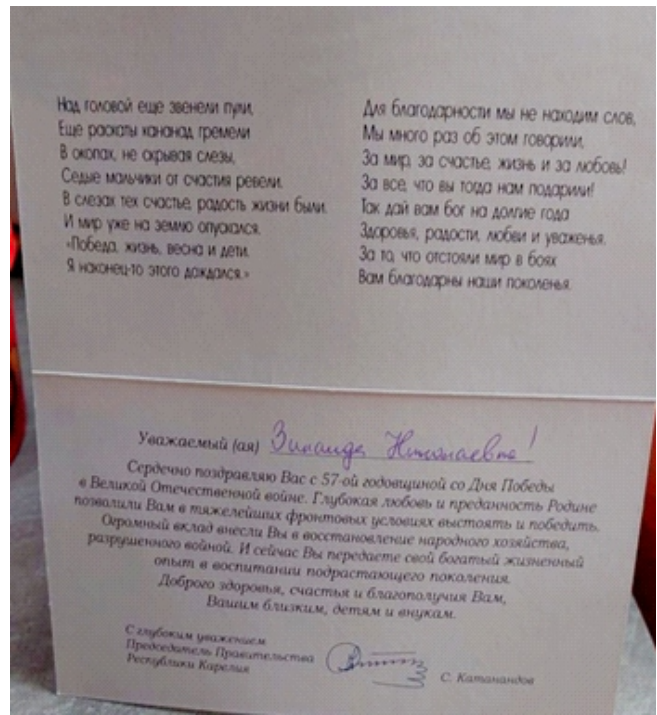 Над головой еще звенели пули,
Еще раскаты канонад гремели
В окопах, не скрывая слезы,
Седые мальчики от счастия ревели.
В слезах тех счастье, радость жизни были.
И мир уже на землю опускался.
«Победа, жизнь, весна и дети.
Я наконец-то этого дождался.»
Для благодарности мы не находим слов,
Мы много раз об этом говорили,
За мир, за счастье, жизнь и за любовь!
За все, что вы тогда нам подарили!
Так дай вам бог на долгие года
Здоровья, радости, любви и уваженья.
За то, что отстояли мир в боях
Вам благодарны наши поколенья.
Уважаемый (ая) Зинаида Николаевна!
Сердечно поздравляю Вас с 57-ой годовщиной со Дня Победы
в Великой Отечественной войне. Глубокая любовь и преданность Родине
позволили Вам в тяжелейших фронтовых условиях выстоять и победить.
Огромный вклад внесли Вы в восстановление народного хозяйства,
разрушенного войной. И сейчас Вы передаете свой богатый жизненный
опыт в воспитании подрастающего поколения.
Доброго здоровья, счастья и благополучия Вам,
Вашим близким, детям и внукам.
С глубоким уважением
Председатель Правительства
Республики Карелия
С. Катанандов